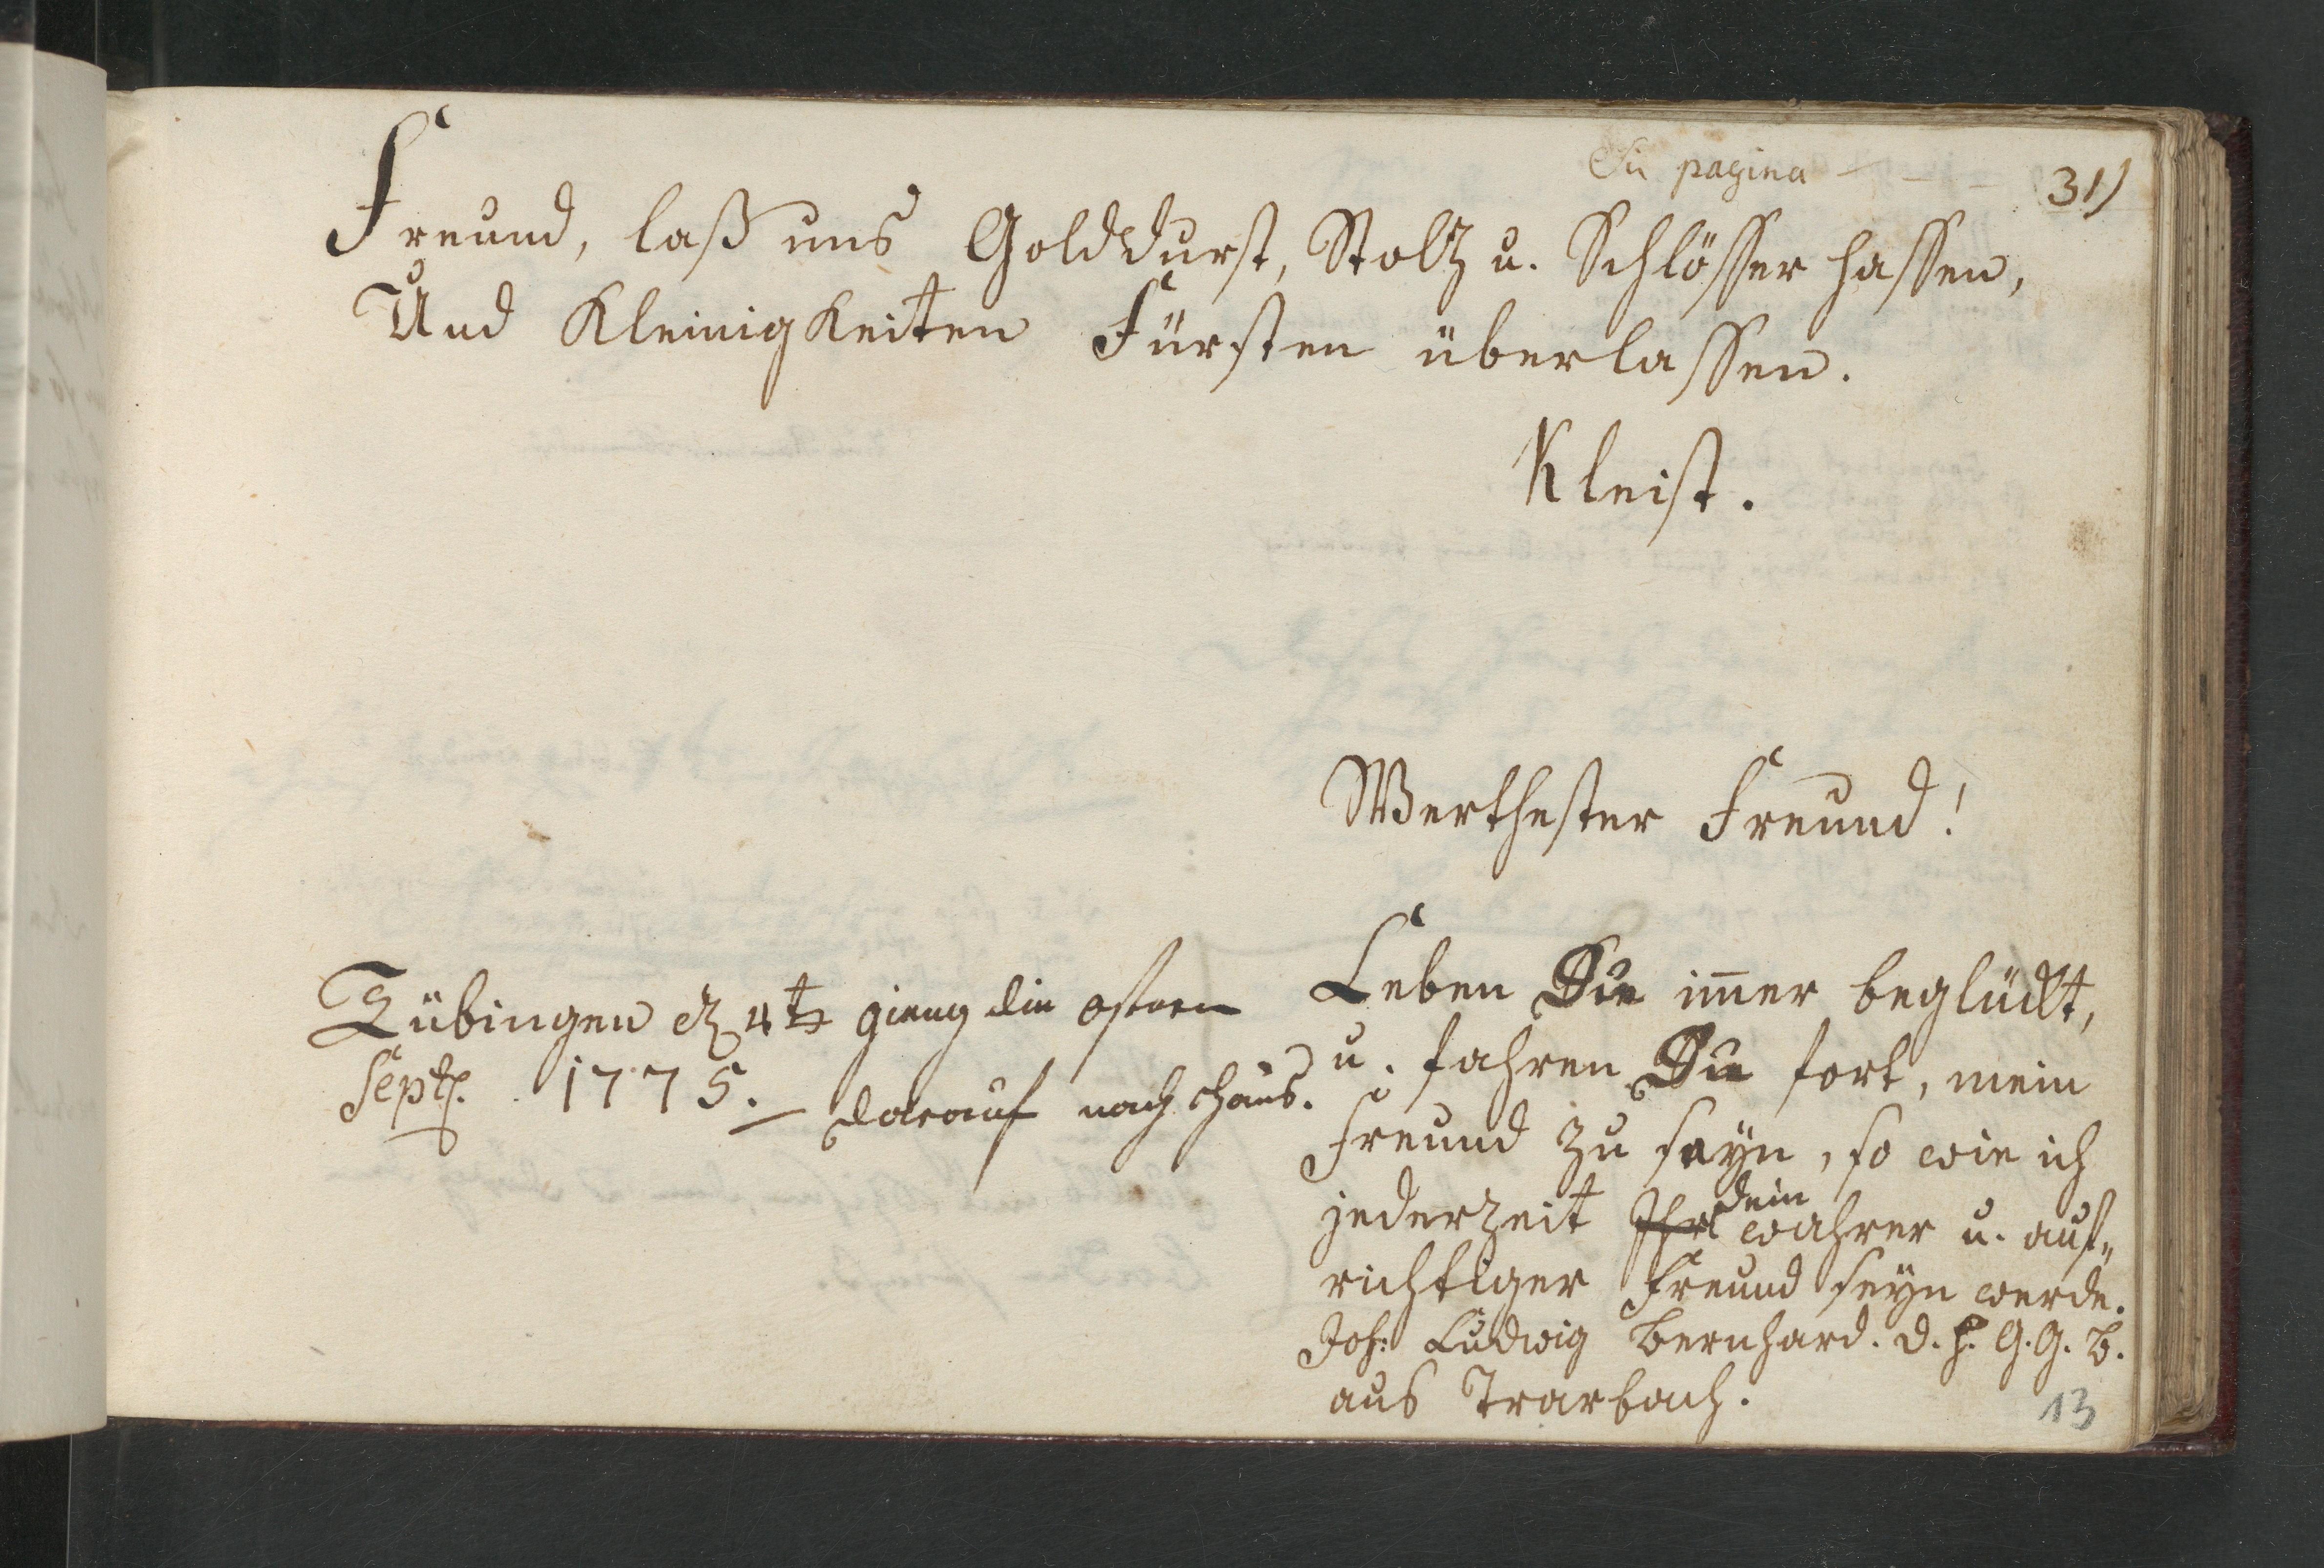 Sii pagina - - - 31)
Freund, laß uns Golddurst, Stoltz u. Schlösser hassen,
Und Kleinigkeiten Fürsten überlassen.
Kleist.
Werthester Freund!
Tübingen d. 4t gieng die ostern
Sept. 1775. – darauf nach Haus.
Leben Sie im̄er beglückt,
u. fahren Sie fort, mein
Freund zu seyn, so wie ich
jederzeit Ihr dein wahrer u. auf„
richtiger Freund seyn werde.
Joh: Ludwig Bernhard. d. h. G. G. B.
aus Trarbach.
13